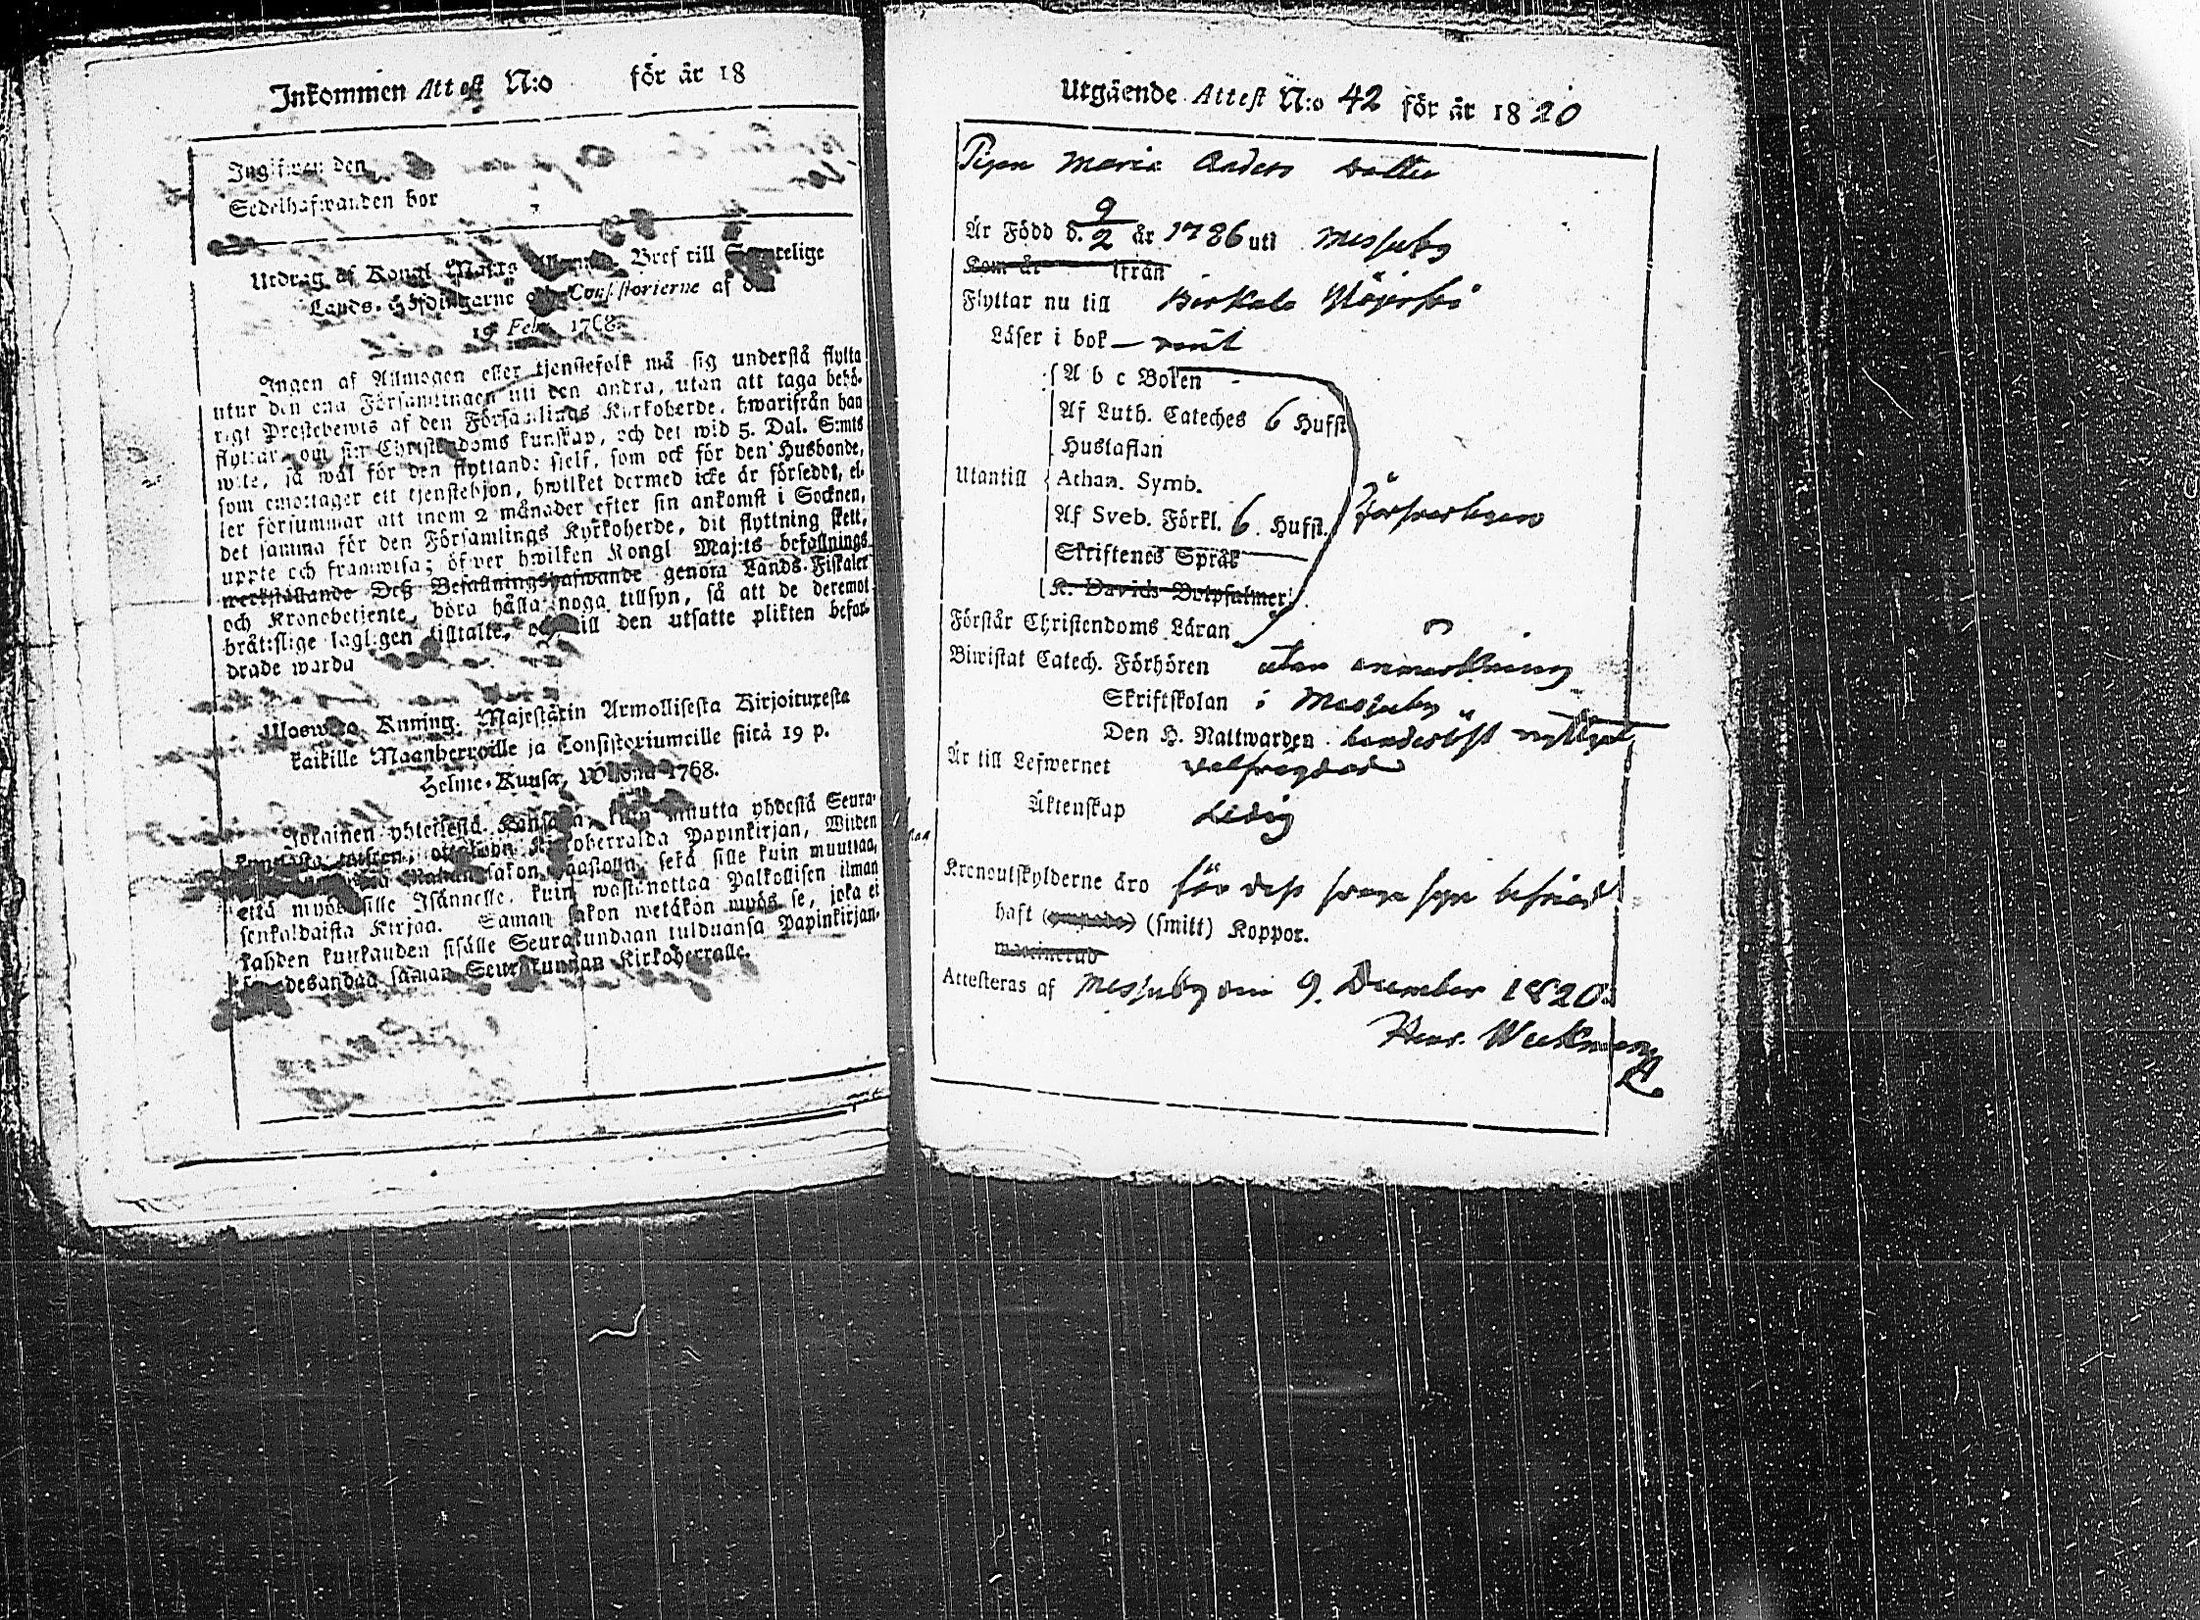 Inkommen Attest N:o för år 18
Ingifwen den
Sedelhafwanden bor
Utdrag af Kongl. Maj:ts Bref till Samtelige
Lands-Höfdingarne Consistorierne af den
19 Febr. 1768.
Ingen af Allmogen eller tjenstefolk må sig understå flytta
utur den ena Församlingen uti den andra, utan att taga behö-
rigt Prestebewis af den Församlings Kyrkoherde, hwarifrån han
flyttar, om sin Christendoms kunskap, och det wid 5. Dal. S:mts
wite, så wäl för den flyttande sjelf, som ock för den Husbonde,
som emottager ett tjenstehjon, hwilket dermed icke är försedt, el-
ler försummar att inom 2 månader efter sin ankomst i Socknen,
det samma för den Församlings Kyrkoherde, dit flyttning skett,
uppte och framwisa; öfwer hwilken Kongl Maj:ts befallnings
werkställande Deß Befallningshafwande genom Lands-Fiskaler
och Kronobetjente, böra hålla noga tillsyn, så att de deremot
brätslige lagligen tilltalte, och till den utsatte plikten befor-
drade warda
Uloswedo Kuning. Majestätin Armollisesta Kirjoituxesta
kaikille Maanherroille ja Consistoriumeille siitä 19 p.
Helme-Kuusa, Wuonna 1768.
Jokainen yhteisestä Kansasta, kuin muutta yhdestä Seura-
Kirkoherralda Papinkirjan, Wiiden
sakon sekä sille kuin muuttaa,
että myös sille Isännelle, kuin wastanottaa Palkollisen ilman
senkaldaista Kirjaa. Saman sakon wetäkön myös se, joka ei
kahden kuukauden sisälle Seurakundaan tulduansa Papinkirjan-
sa edesandaa saman Seurakunnan Kirkoherralle.
Utgäende Attest N:o 42 för år 1820
Pigan Maria Anders Dotter
Är Född d. 9/2 år 1786 uti Messuby
Kom år ifrån
Flyttar nu till Birkala
Läser i bok — rent
A b c Boken
Af Luth. Cateches 6 Hufst
Hustaflan
Utantill Athan. Symb.
Af Sveb. Förkl. 6. Hufst. försvarligen
Skriftenes Språk
K. Davids Botpsalmer
Förstår Christendoms Läran
Biwistat Catech. Förhören utan anmärkning
Skriftskolan i Messuby
Den H. Nattwarden nyttjat
Är till Lefwernet välfrägdad
Äktenskap Ledig
Kronoutskylderne äro för dess svaga syn befriad
haft (smitt) Koppor.
waccinerad
Attesteras af Messuby den 9. December 1820.